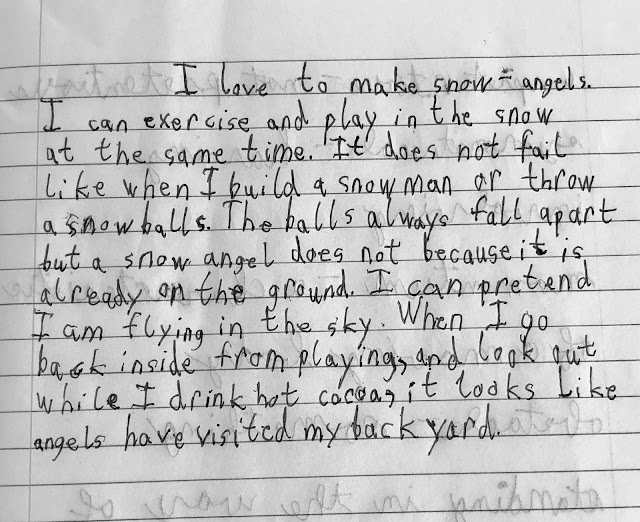 I love to make snow-angels.
I can exercise and play in the snow
at the same time. It does not fail
like when I build a snow man or throw
a snow balls. The balls always fall apart
but a snow angel does not because it is
already on the ground. I can pretend
I am flying in the sky. When I go
back inside from playing, and look out
while I drink hot cocoa, it looks like
angels have visited my back yard.
standing in the way of